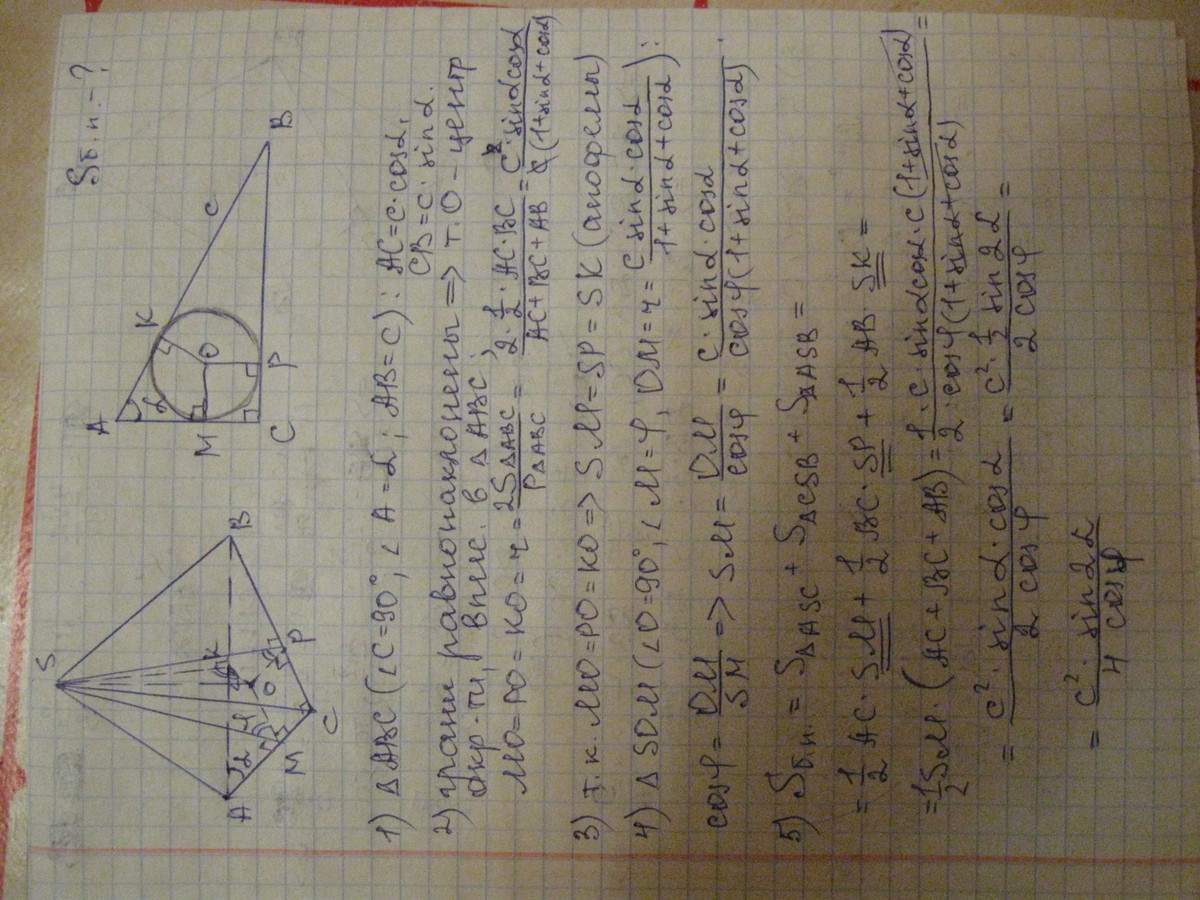 Sб.п. - ?
S
A
B
C
M
K
P
O
α
φ
A
K
c
B
α
O
M
C
P
1) △ABC (∠C=90°, ∠A=α; AB=c): AC=c·cosα,
CB=c·sinα.
2) грани равнонаклонены => т.O - центр
окр-ти, впис. в △ABC;
MO=PO=KO=r= 2S△ABC / P△ABC = 2·1/2·AC·BC / AC+BC+AB = c²·sinα cosα / c(1+sinα+cosα)
3) т.к. MO=PO=KO => SM=SP=SK (апофемы)
4) △SOM (∠O=90°, ∠M=φ, OM=r= c sinα·cosα / 1+sinα+cosα):
cosφ = OM / SM => SM = OM / cosφ = c·sinα·cosα / cosφ(1+sinα+cosα).
5) Sб.п. = S△ASC + S△CSB + S△ASB =
= 1/2 AC·SM + 1/2 BC·SP + 1/2 AB·SK =
= 1/2 SM·(AC+BC+AB) = 1/2 · c·sinαcosα·c(1+sinα+cosα) / cosφ(1+sinα+cosα) =
= c²·sinα·cosα / 2cosφ = c²·1/2 sin2α / 2cosφ =
= c²·sin2α / 4cosφ